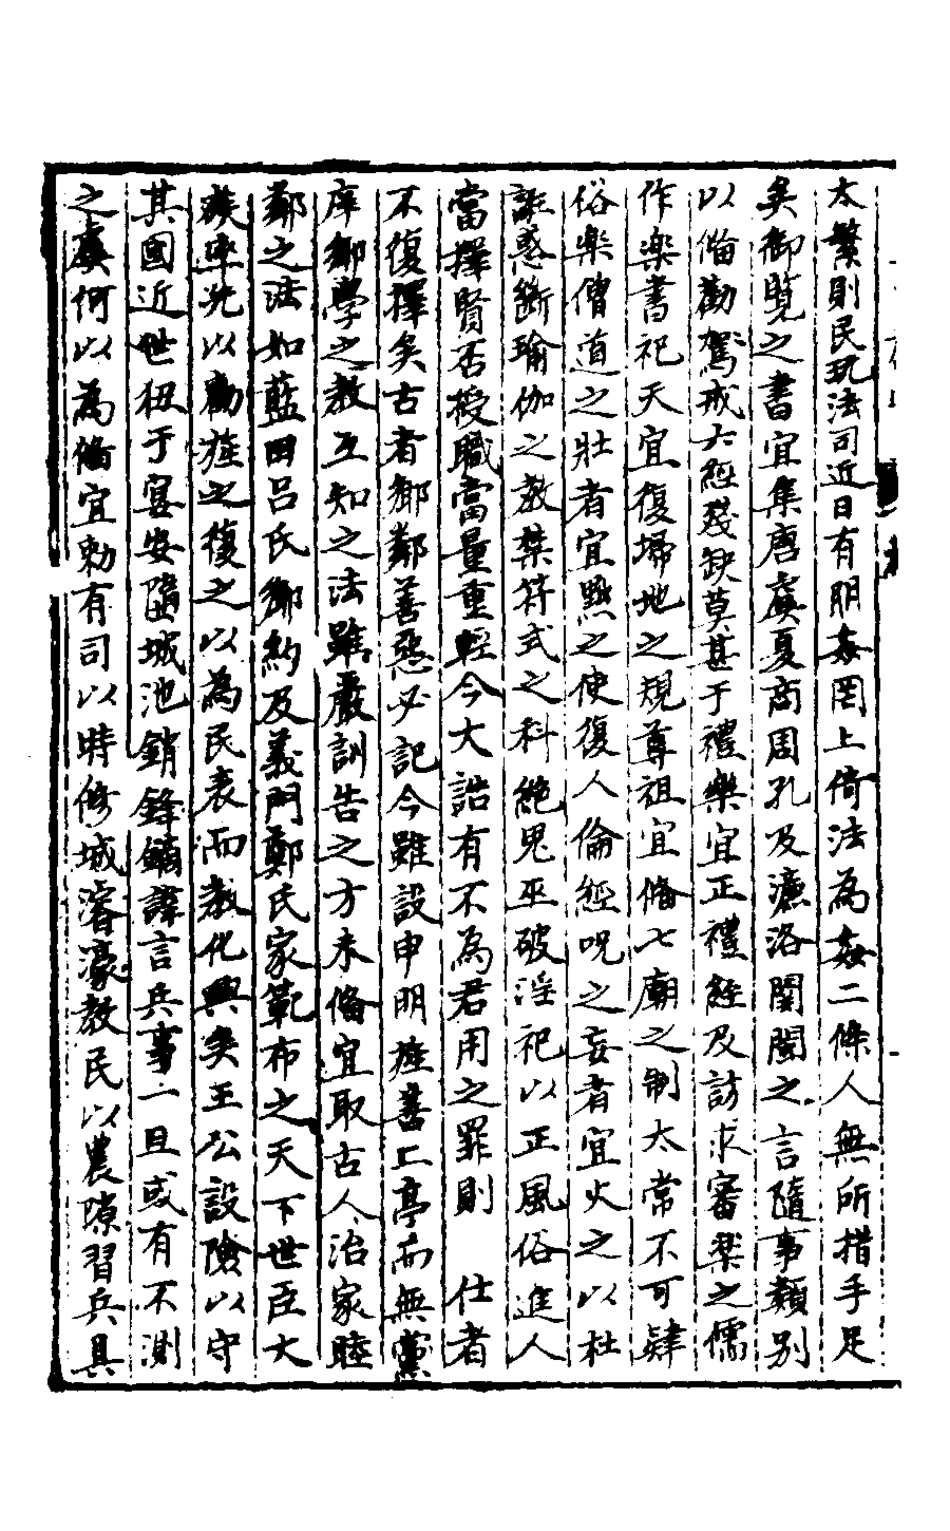 太繁則民玩法司近日有朋姦罔上倚法為姦二條人無所措手足
矣御覧之書宜集唐虞夏商周孔及濂洛関閩之言隨事類別
以俻勸駕戒六經殘缺莫甚于禮樂宜正禮經及訪求審楽之儒
作楽書祀天宜復埽地之規尊祖宜俻七廟之制太常不可肄
俗楽僧道之壯者宜黜之使復人倫經呪之妄者宜火之以杜
誑惑斷瑜伽之教禁符式之科絶鬼巫破淫祀以正風俗進人
當擇賢否授職當量重輕今大誥有不為君用之罪則 仕者
不復擇矣古者鄉鄰善惡必記今雖設申明旌善二亭而無黨
庠鄉學之教互知之法雖嚴訓告之方未俻宜取古人治家睦
鄰之法如藍田呂氏鄉約及義門鄭氏家範布之天下世臣大
族率先以勸旌之復之以為民表而教化興矣王公設險以守
其國近世狃于宴安隳城池銷鋒鏑諱言兵事一旦或有不測
之虞何以為俻宜勅有司以時修城濬濠教民以農隙習兵具